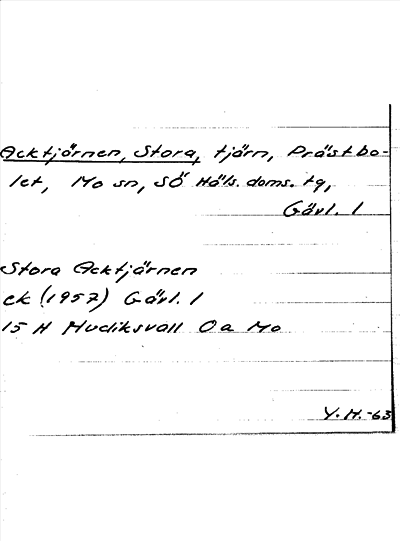 Acktjärnen, Stora, tjärn, Prästbo-
let, Mo sn, SÖ Häls. doms. tg,
Gävl. l
Stora Acktjärnen
ek (1957) Gävl. l
15 H Hudiksvall Oa Mo
Y. H. -63